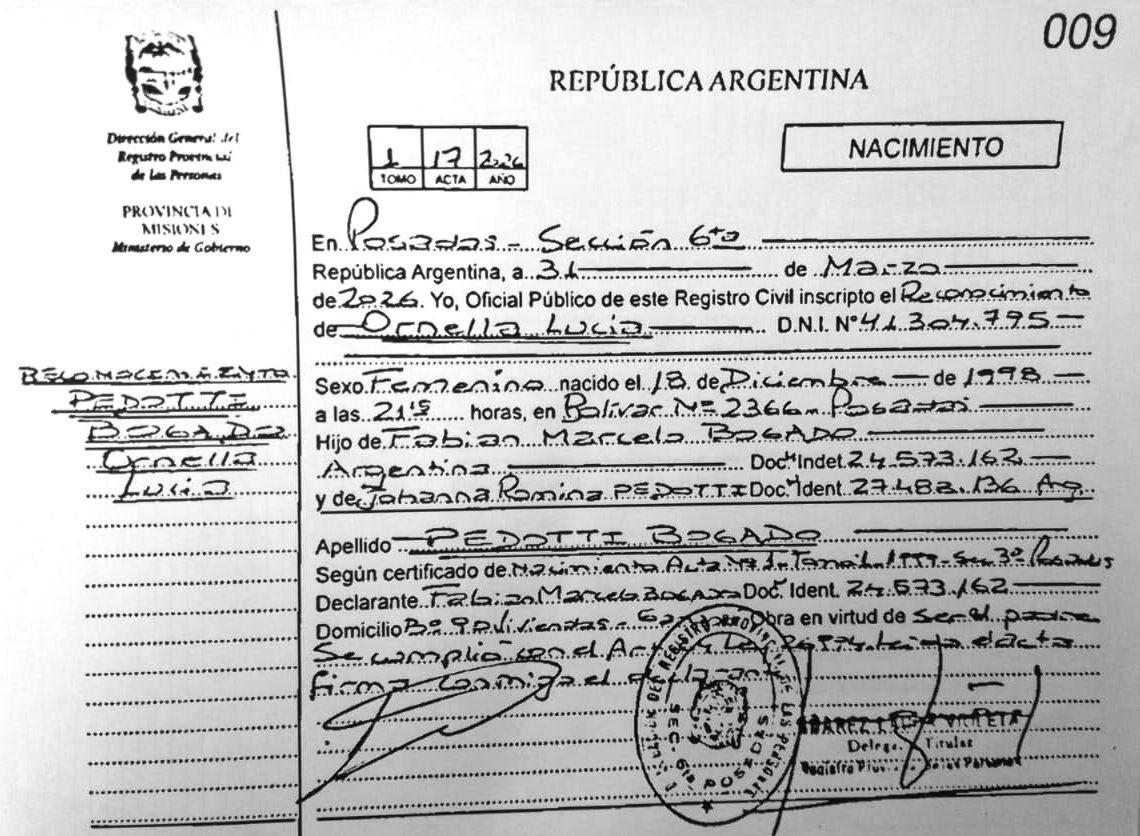 009
REPÚBLICA ARGENTINA
Dirección General del
Registro Provincial
de las Personas
PROVINCIA DE
MISIONES
Ministerio de Gobierno
1 17 2026
TOMO ACTA AÑO
NACIMIENTO
En Posadas - Sección 6ta
República Argentina, a 31 de Marzo
de 2026. Yo, Oficial Público de este Registro Civil inscripto el Reconocimiento
de Ornella Lucia D.N.I. Nº 41.304.795
RECONOCIMIENTO
PEDOTTI
BOGADO
Ornella
Lucia
Sexo Femenino nacido el 18 de Diciembre de 1998
a las 21:15 horas, en Bolivar Nº 2366 - Posadas
Hijo de Fabian Marcelo BOGADO
Argentina Doc. Indet. 24.573.162
y de Johanna Romina PEDOTTI Doc. Ident. 27.488.136 Arg.
Apellido PEDOTTI BOGADO
Según certificado de Nacimiento Acta Nº 1 - Tomo 1 - 1999 - Sec 3º Posadas
Declarante Fabian Marcelo BOGADO Doc. Ident. 24.573.162
Domicilio Bº 90 Viviendas - Obra en virtud de ser el padre
Se cumplió con el Leida el acta
firma conmigo el
REGISTRO PROVINCIAL DE LAS PERSONAS
SEC. 6ta POSADAS
Titular